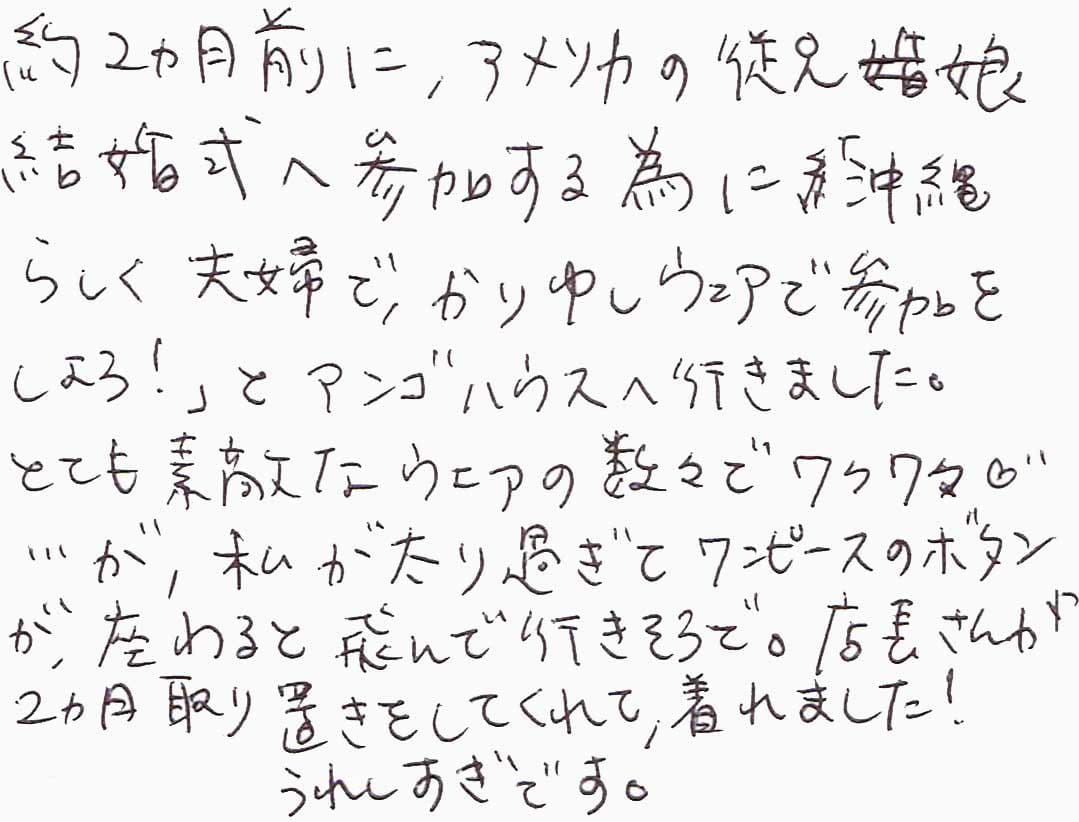 約2カ月前に,アメリカの従兄娘
結婚式へ参加する為に「沖縄
らしく夫婦で,かりゆしウェアで参加を
しよう!」とアンゴハウスへ行きました。
とても素敵なウェアの数々でワクワク
…が,私が太り過ぎてワンピースのボタン
が,座わると飛んで行きそうで。店長さんが
2カ月取り置きをしてくれて,着れました!
うれしすぎです。